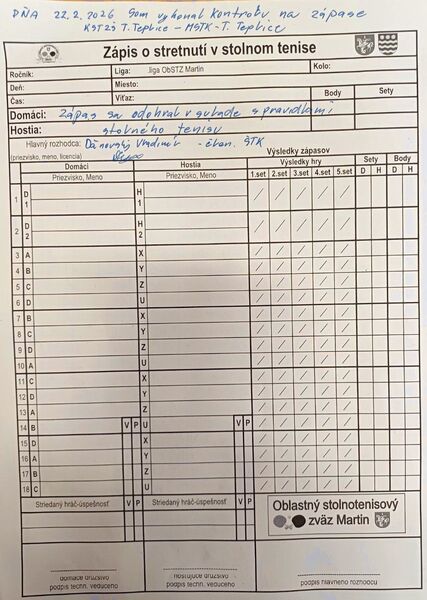 DŇA 22.2.2026 Som vykonal kontrolu na zápase
KSTZŠ T. Teplice - MSTK T. Teplice
Zápis o stretnutí v stolnom tenise
Ročník: Liga: .liga ObSTZ Martin Kolo:
Deň: Miesto:
Čas: Víťaz: Body Sety
Domáci: Zápas sa odohral v súlade s pravidlami
Hostia: stolného tenisu
Hlavný rozhodca: Vladimír - člen. ŠTK
(priezvisko, meno, licencia)
Výsledky zápasov
Domáci Hostia Výsledky hry Sety Body
Priezvisko, Meno Priezvisko, Meno 1.set 2.set 3.set 4.set 5.set D H D H
1 D1 H1 / / / / /
2 D2 H2 / / / / /
3 A X / / / / /
4 B Y / / / / /
5 C Z / / / / /
6 D U / / / / /
7 B X / / / / /
8 C Y / / / / /
9 D Z / / / / /
10 A U / / / / /
11 C X / / / / /
12 D Y / / / / /
13 A Z / / / / /
14 B V P U V P / / / / /
15 D X / / / / /
16 A Y / / / / /
17 B Z / / / / /
18 C U / / / / /
Striedaný hráč-úspešnosť V P Striedaný hráč-úspešnosť V P
Oblastný stolnotenisový
zväz Martin
domáce družstvo hosťujúce družstvo
podpis techn. vedúceho podpis techn. vedúceho podpis hlavného rozhodcu